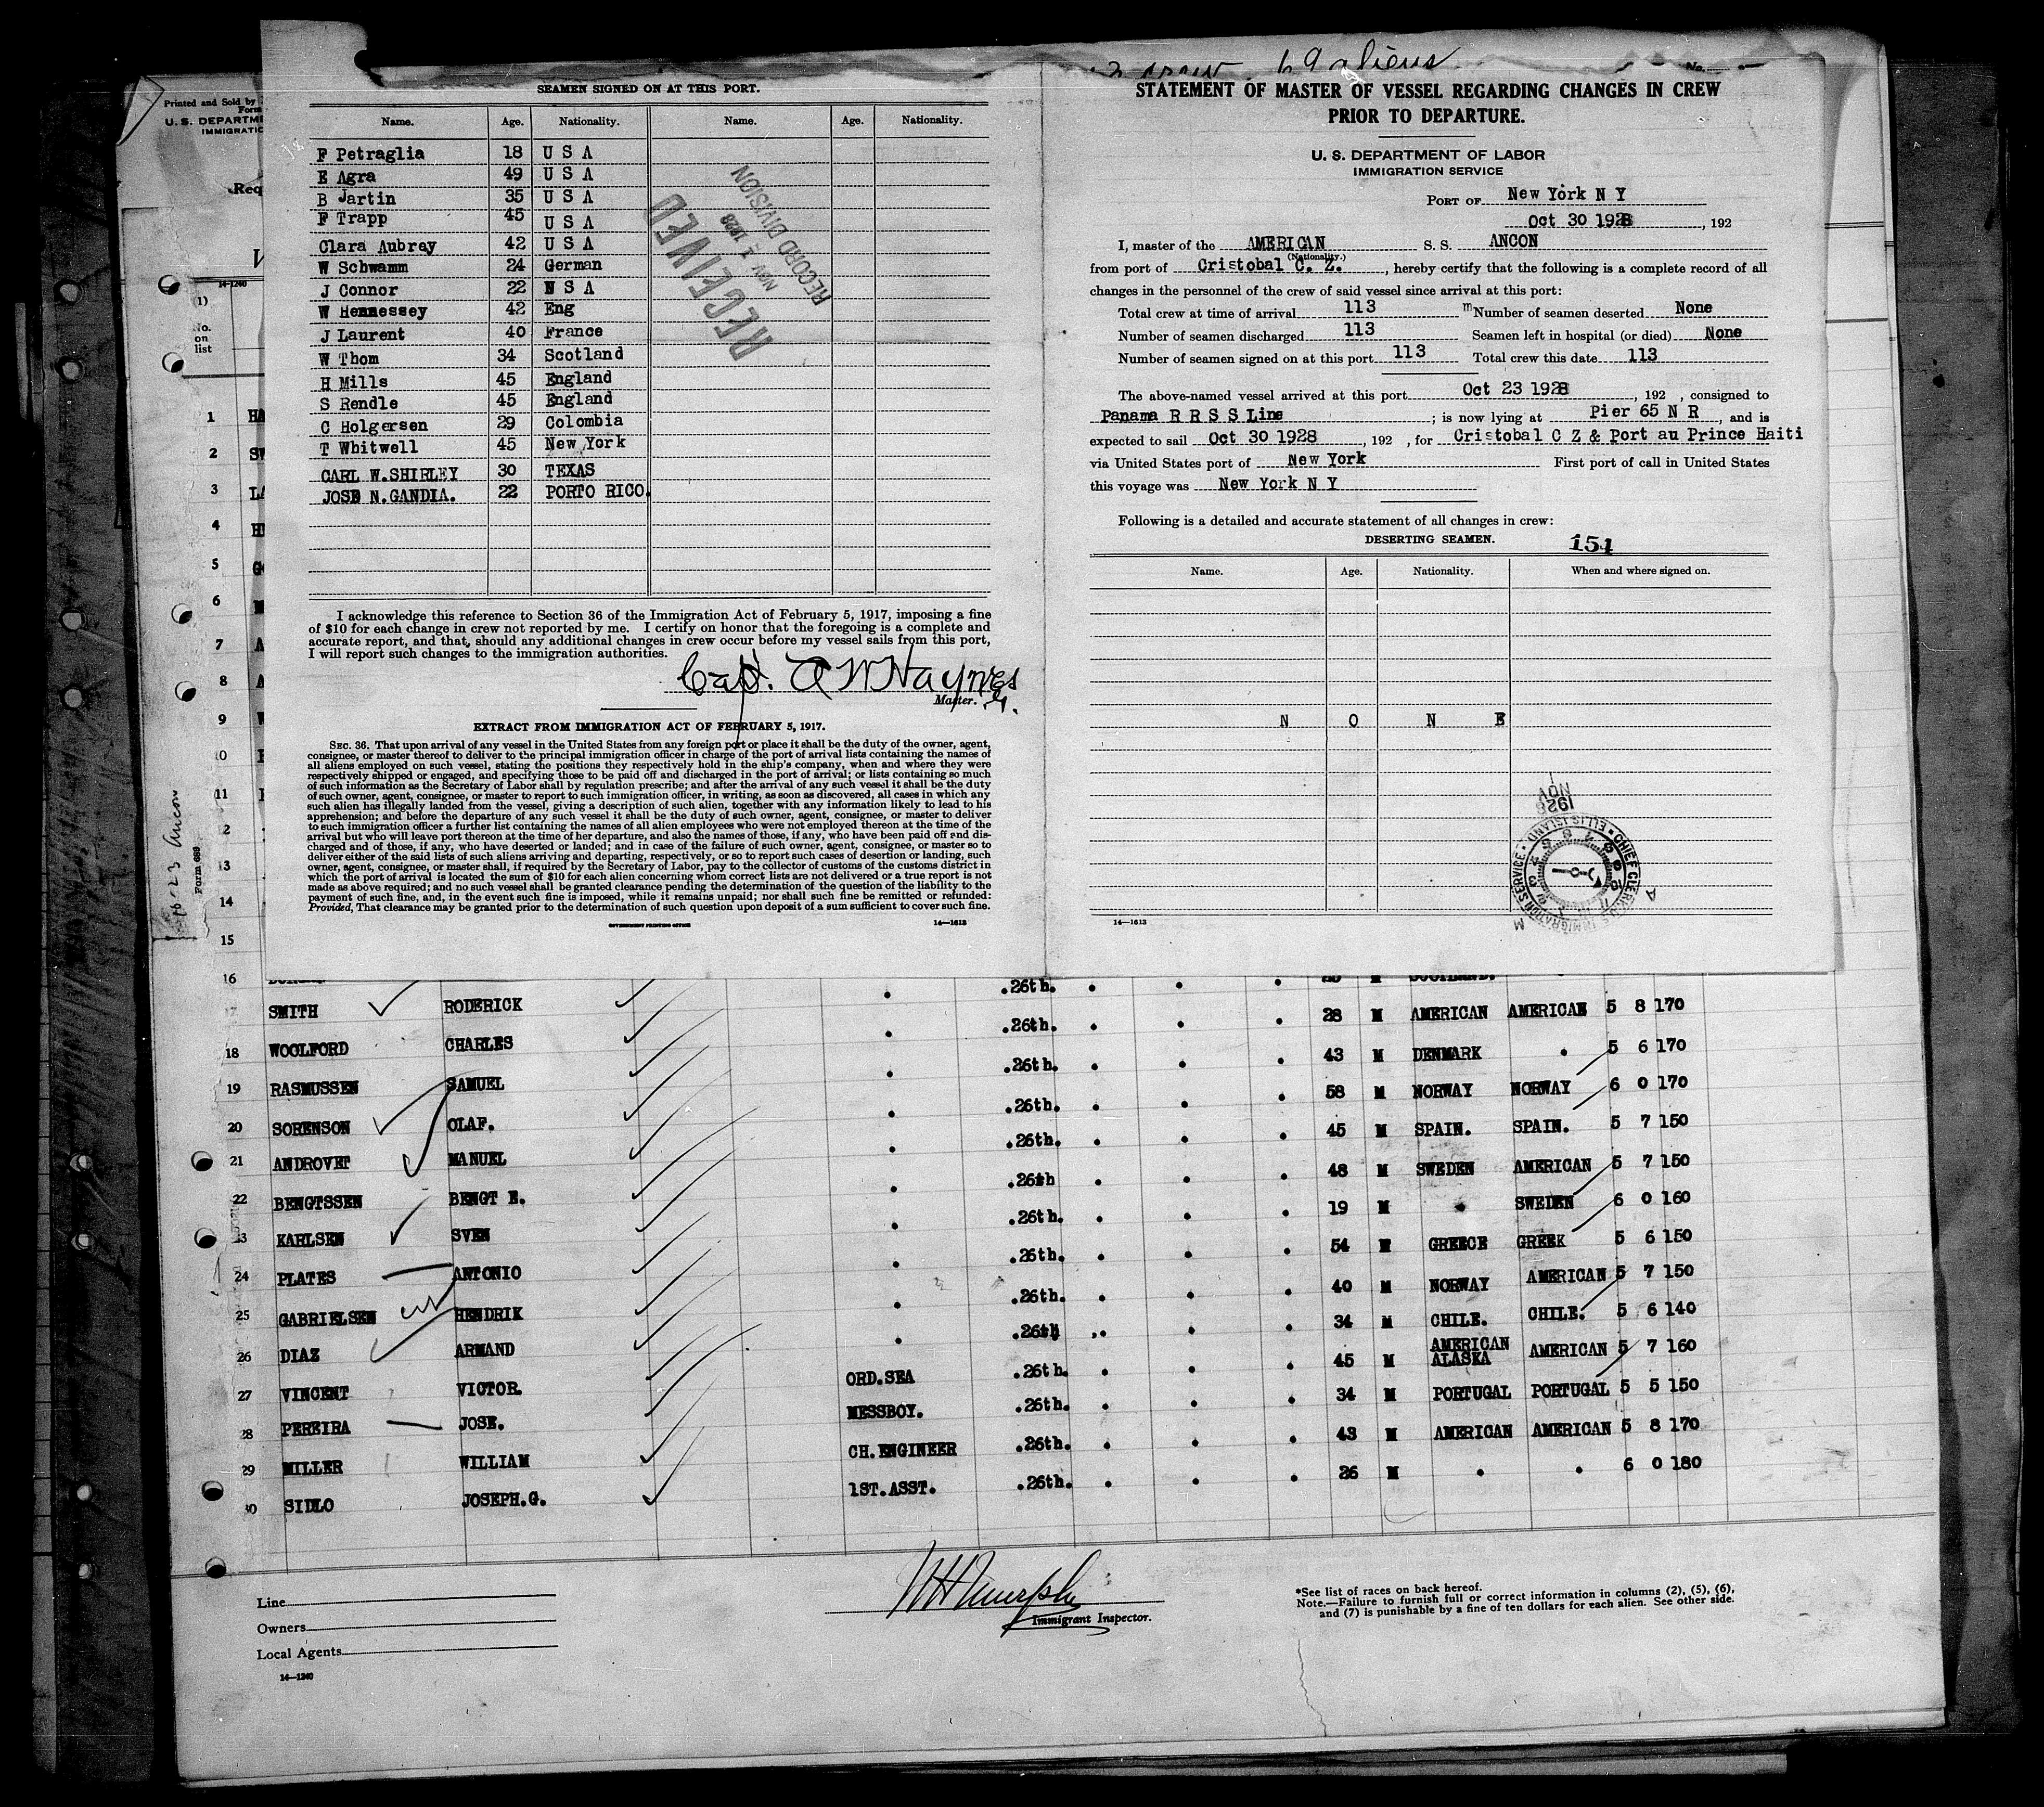 69 aliens
No.
Printed and Sold by
Form
U. S. DEPARTME
IMMIGRATIO
Req
14-1240
1)
No.
on
list
SEAMEN SIGNED ON AT THIS PORT.
Name. Age. Nationality. Name. Age. Nationality.
F Petraglia 18 U S A
E Agra 49 U S A
B Jartin 35 U S A
F Trapp 45 U S A
Clara Aubrey 42 U S A
W Schwamm 24 German
J Connor 22 U S A
W Hennessey 42 Eng
J Laurent 40 France
W Thom 34 Scotland
H Mills 45 England
S Rendle 45 England
C Holgersen 29 Colombia
T Whitwell 45 New York
CARL W.SHIRLEY 30 TEXAS
JOSE N.GANDIA. 22 PORTO RICO.
RECEIVED
NOV 1 1928
RECORD DIVISION
I acknowledge this reference to Section 36 of the Immigration Act of February 5, 1917, imposing a fine
of $10 for each change in crew not reported by me. I certify on honor that the foregoing is a complete and
accurate report, and that, should any additional changes in crew occur before my vessel sails from this port,
I will report such changes to the immigration authorities.
Capt. A W Haynes
Master.
EXTRACT FROM IMMIGRATION ACT OF FEBRUARY 5, 1917.
SEC. 36. That upon arrival of any vessel in the United States from any foreign port or place it shall be the duty of the owner, agent,
consignee, or master thereof to deliver to the principal immigration officer in charge of the port of arrival lists containing the names of
all aliens employed on such vessel, stating the positions they respectively hold in the ship's company, when and where they were
respectively shipped or engaged, and specifying those to be paid off and discharged in the port of arrival; or lists containing so much
of such information as the Secretary of Labor shall by regulation prescribe; and after the arrival of any such vessel it shall be the duty
of such owner, agent, consignee, or master to report to such immigration officer, in writing, as soon as discovered, all cases in which any
such alien has illegally landed from the vessel, giving a description of such alien, together with any information likely to lead to his
apprehension; and before the departure of any such vessel it shall be the duty of such owner, agent, consignee, or master to deliver
to such immigration officer a further list containing the names of all alien employees who were not employed thereon at the time of the
arrival but who will leave port thereon at the time of her departure, and also the names of those, if any, who have been paid off and dis-
charged and of those, if any, who have deserted or landed; and in case of the failure of such owner, agent, consignee, or master so to
deliver either of the said lists of such aliens arriving and departing, respectively, or so to report such cases of desertion or landing, such
owner, agent, consignee, or master shall, if required by the Secretary of Labor, pay to the collector of customs of the customs district in
which the port of arrival is located the sum of $10 for each alien concerning whom correct lists are not delivered or a true report is not
made as above required; and no such vessel shall be granted clearance pending the determination of the question of the liability to the
payment of such fine, and, in the event such fine is imposed, while it remains unpaid; nor shall such fine be remitted or refunded:
Provided, That clearance may be granted prior to the determination of such question upon deposit of a sum sufficient to cover such fine.
GOVERNMENT PRINTING OFFICE 14—1613
STATEMENT OF MASTER OF VESSEL REGARDING CHANGES IN CREW
PRIOR TO DEPARTURE.
U. S. DEPARTMENT OF LABOR
IMMIGRATION SERVICE
PORT OF New York N Y
Oct 30 1928, 192
I, master of the AMERICAN S. S. ANCON
(Nationality.)
from port of Cristobal C. Z., hereby certify that the following is a complete record of all
changes in the personnel of the crew of said vessel since arrival at this port:
Total crew at time of arrival 113 Number of seamen deserted None
Number of seamen discharged 113 Seamen left in hospital (or died) None
Number of seamen signed on at this port 113 Total crew this date 113
The above-named vessel arrived at this port Oct 23 1928, 192 , consigned to
Panama R R S S Line; is now lying at Pier 65 N R, and is
expected to sail Oct 30 1928, 192 , for Cristobal C Z & Port au Prince Haiti
via United States port of New York First port of call in United States
this voyage was New York N Y
Following is a detailed and accurate statement of all changes in crew:
DESERTING SEAMEN. 151
Name. Age. Nationality. When and where signed on.
N O N E
NOV
1928
CHIEF CLERK
IMMIGRATION SERVICE
ELLIS ISLAND
14—1613
1
2
3
4
5
6
7
8
9
10
11
12
13
14
15
Ancon
Form 689
16 .26th. SCOTLAND.
17 SMITH RODERICK .26th. 28 M AMERICAN AMERICAN 5 8 170
18 WOOLFORD CHARLES .26th. 43 M DENMARK 5 6 170
19 RASMUSSEN SAMUEL .26th. 58 M NORWAY NORWAY 6 0 170
20 SORENSON OLAF. .26th. 45 M SPAIN. SPAIN. 5 7 150
21 ANDROVET MANUEL .26th 48 M SWEDEN AMERICAN 5 7 150
22 BENGTSSEN BENGT E. .26th. 19 M " SWEDEN 6 0 160
23 KARLSEN SVEN .26th. 54 M GREECE GREEK 5 6 150
24 PLATES ANTONIO .26th. 40 M NORWAY AMERICAN 5 7 150
25 GABRIELSEN HENDRIK .26th 34 M CHILE. CHILE. 5 6 140
26 DIAZ ARMAND .26th. 45 M AMERICAN ALASKA AMERICAN 5 7 160
27 VINCENT VICTOR. ORD.SEA .26th. 34 M PORTUGAL PORTUGAL 5 5 150
28 PEREIRA JOSE. MESSBOY. .26th. 43 M AMERICAN AMERICAN 5 8 170
29 MILLER WILLIAM CH.ENGINEER .26th. 26 M " " 6 0 180
30 SIDLO JOSEPH.G. 1ST.ASST.
Line
Owners
Local Agents
14—1240
Immigrant Inspector.
*See list of races on back hereof.
Note.—Failure to furnish full or correct information in columns (2), (5), (6),
and (7) is punishable by a fine of ten dollars for each alien. See other side.